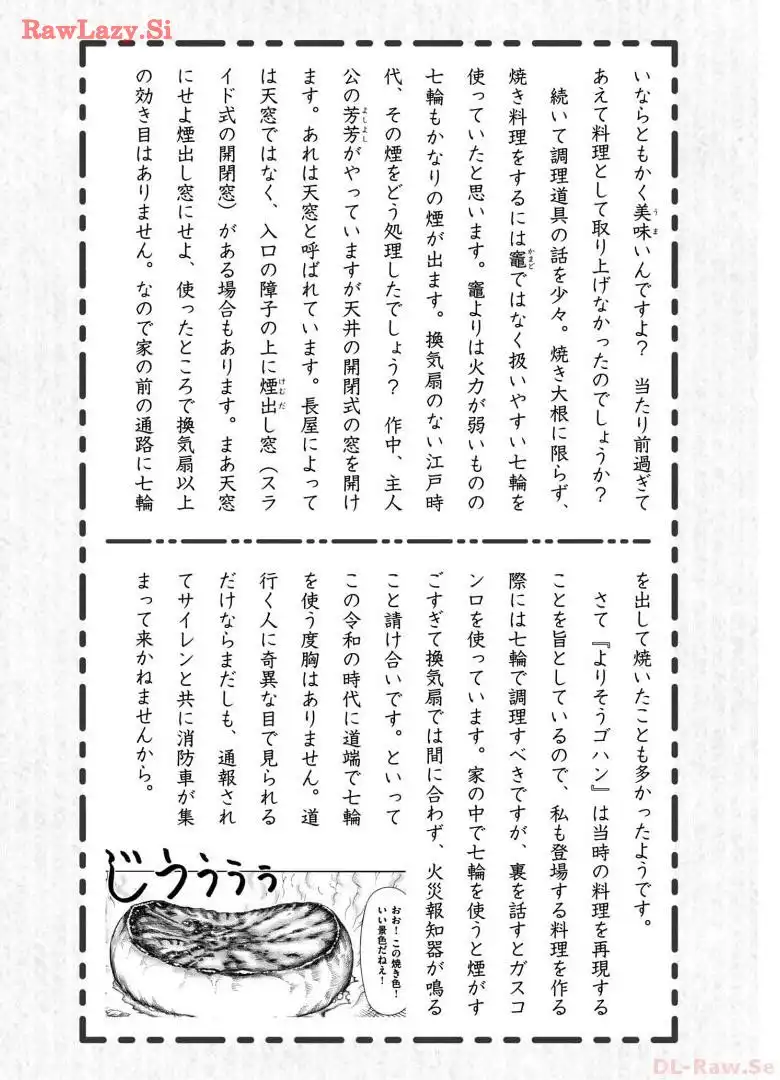 RawLazy.Si
いならともかく美味いんですよ？　当たり前過ぎて
うま
あえて料理として取り上げなかったのでしょうか？
続いて調理道具の話を少々。焼き大根に限らず、
焼き料理をするには竈ではなく扱いやすい七輪を
かまど
使っていたと思います。竈よりは火力が弱いものの
七輪もかなりの煙が出ます。換気扇のない江戸時
代、その煙をどう処理したでしょう？　作中、主人
公の芳芳がやっていますが天井の開閉式の窓を開け
よしよし
ます。あれは天窓と呼ばれています。長屋によって
は天窓ではなく、入口の障子の上に煙出し窓（スラ
けむだ
イド式の開閉窓）がある場合もあります。まあ天窓
にせよ煙出し窓にせよ、使ったところで換気扇以上
の効き目はありません。なので家の前の通路に七輪
を出して焼いたことも多かったようです。
さて『よりそうゴハン』は当時の料理を再現する
ことを旨としているので、私も登場する料理を作る
際には七輪で調理すべきですが、裏を話すとガスコ
ンロを使っています。家の中で七輪を使うと煙がす
ごすぎて換気扇では間に合わず、火災報知器が鳴る
こと請け合いです。といって
この令和の時代に道端で七輪
を使う度胸はありません。道
行く人に奇異な目で見られる
だけならまだしも、通報され
てサイレンと共に消防車が集
まって来かねませんから。
おお！この焼き色！
いい景色だねえ！
じうぅぅぅ
DL-Raw.Se